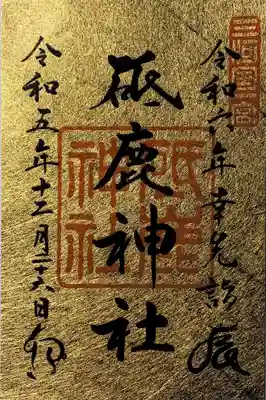 三河國一宮
令和六年幸先詣
辰
砥鹿神社
砥鹿神社
令和五年十二月二十六日